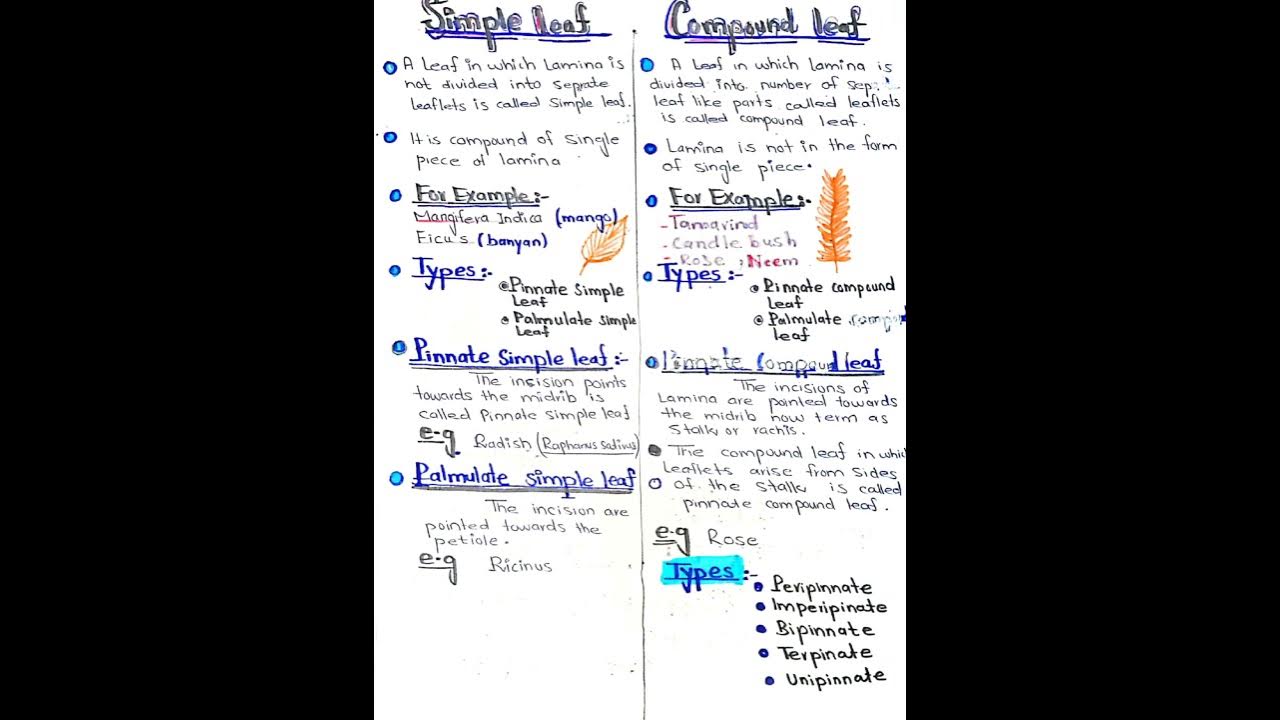 Simple leaf
A Leaf in which Lamina is
not divided into seprate
leaflets is called simple leaf.
It is compound of single
piece of lamina
For Example:-
Mangifera Indica (mango)
Ficu's (banyan)
Types:-
Pinnate simple
Leaf
Palmulate simple
Leaf
Pinnate simple leaf:-
The incision points
towards the midrib is
called Pinnate simple leaf
e-g Radish (Raphanus sadivus)
Palmulate simple leaf
The incision are
pointed towards the
petiole.
e-g Ricinus
Compound leaf
A Leaf in which lamina is
divided into number of sep
leaf like parts called leaflets
is called compound leaf.
Lamina is not in the form
of single piece.
For Example:-
- Tamarind
- Candle bush
- Rose, Neem
Types:-
Pinnate compound
Leaf
Palmulate
leaf
Pinnate Compound leaf
The incisions of
Lamina are pointed towards
the midrib now term as
Stalk or rachis.
The compound leaf in whic
Leaflets arise from sides
of the Stalk is called
pinnate compound leaf.
e-g Rose
Types:-
Peripinnate
Imperipinate
Bipinnate
Terpinate
Unipinnate